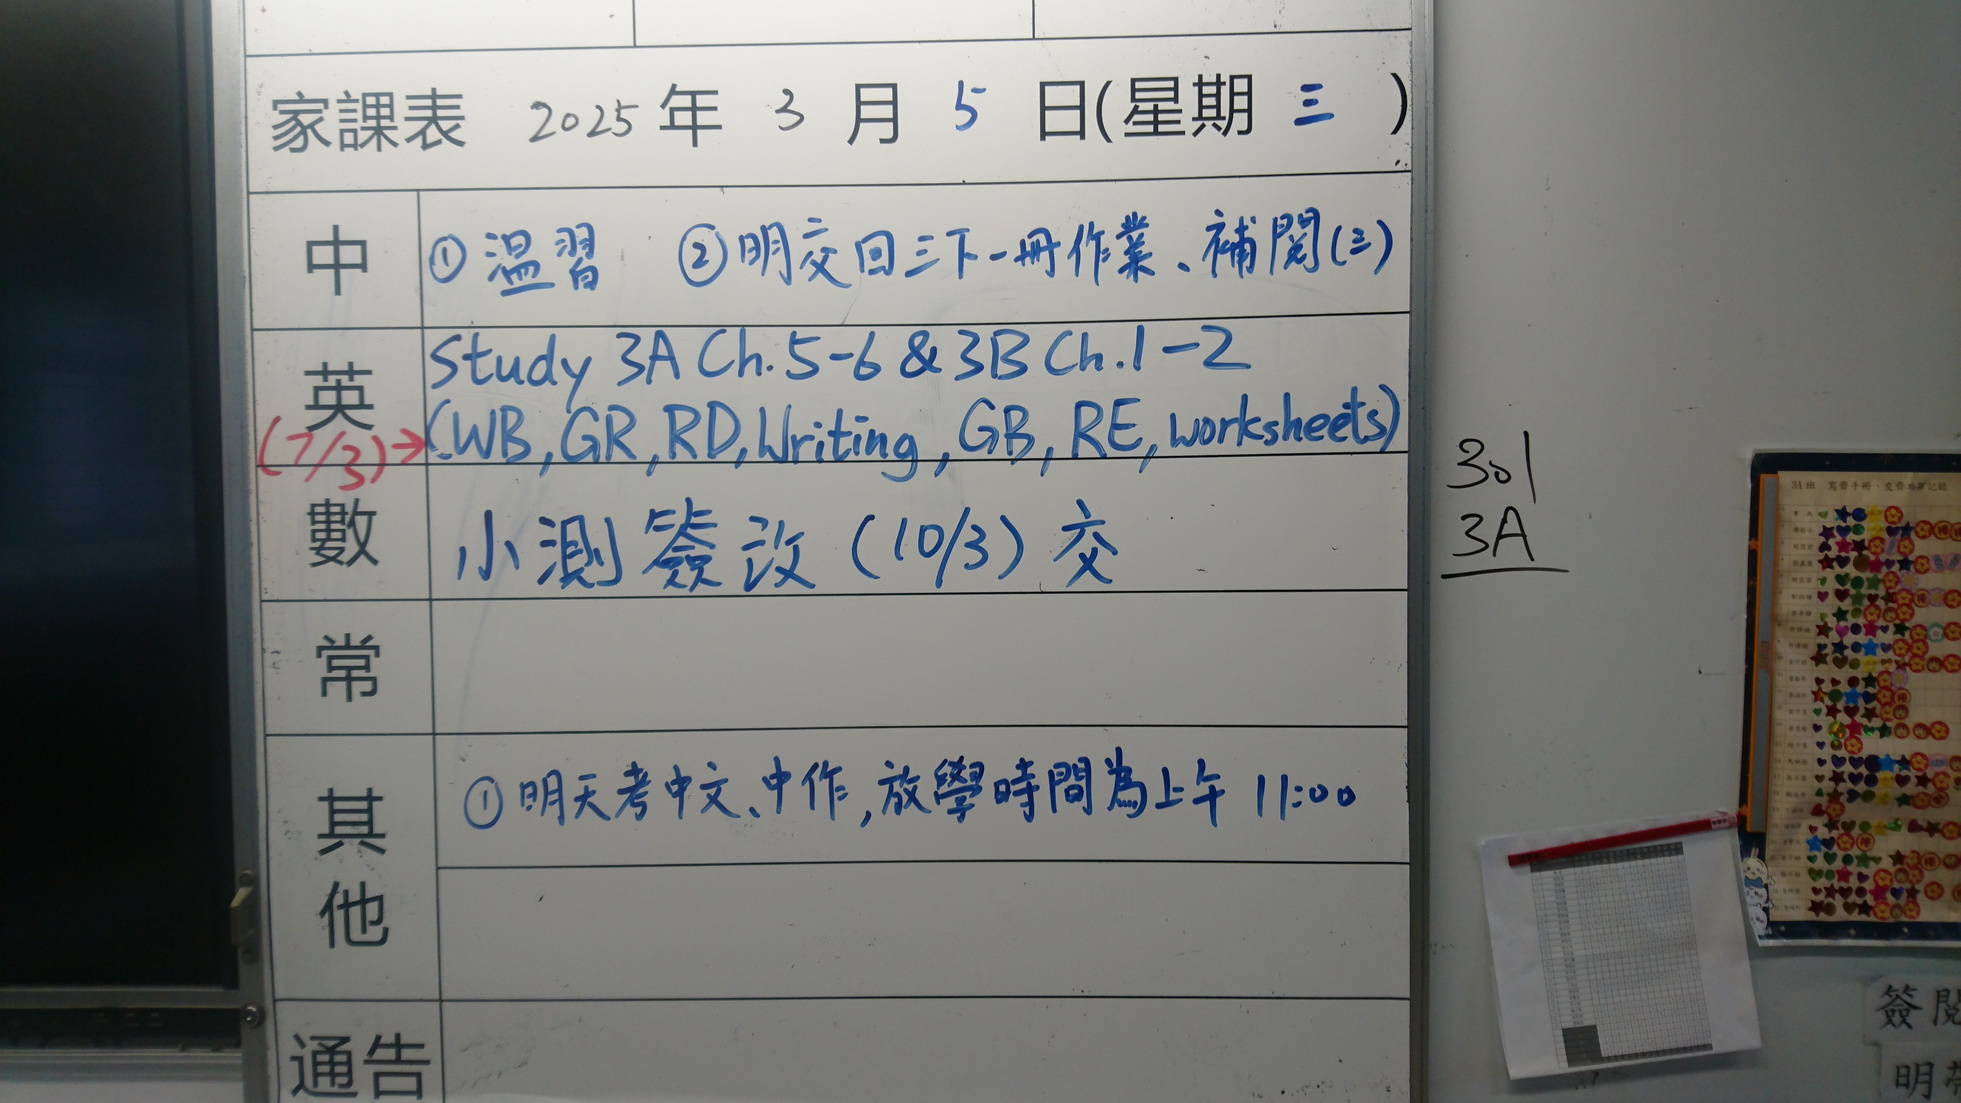 家課表 2025 年 3 月 5 日(星期 三 )
中 ① 溫習 ② 明交回三下一冊作業、補閱(三)
英 Study 3A Ch.5-6 & 3B Ch.1-2
(7/3)→ (WB, GR, RD, Writing, GB, RE, worksheets)
數 小測簽改 (10/3) 交
常
其他 ① 明天考中文、中作,放學時間為上午 11:00
通告
301
3A
簽閱
明帶